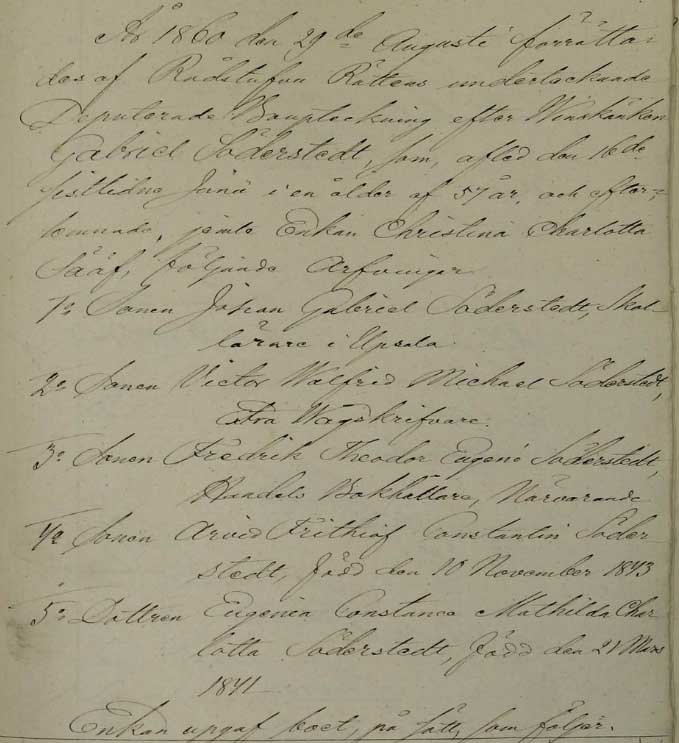 År 1860 den 29de Augusti förrätta-
des af Rådstufvu Rättens undertecknade
Deputerade Bouptekning efter Winskänken
Gabriel Söderstedt, som, afled den 16de
sistlidne Junii i en ålder af 57 år, och efter-
lemnade, jemte Enkan Christina Charlotta
Sääf, följande Arfvingar
1o Sonen Johan Gabriel Söderstedt, Skol-
lärare i Upsala
2o Sonen Victor Walfrid Michael Söderstedt,
Extra Wågskrifvare.
3o Sonen Fredrik Theodor Eugene Söderstedt,
Handels Bokhållare, Närvarande
4o Sonen Arvid Frithiof Constantin Söder
stedt, född den 10 November 1843
5o Dottren Eugenia Constance Mathilda Char
lotta Söderstedt, född den 21 Mars
1841
Enkan uppgaf boet, på sätt, som följer.